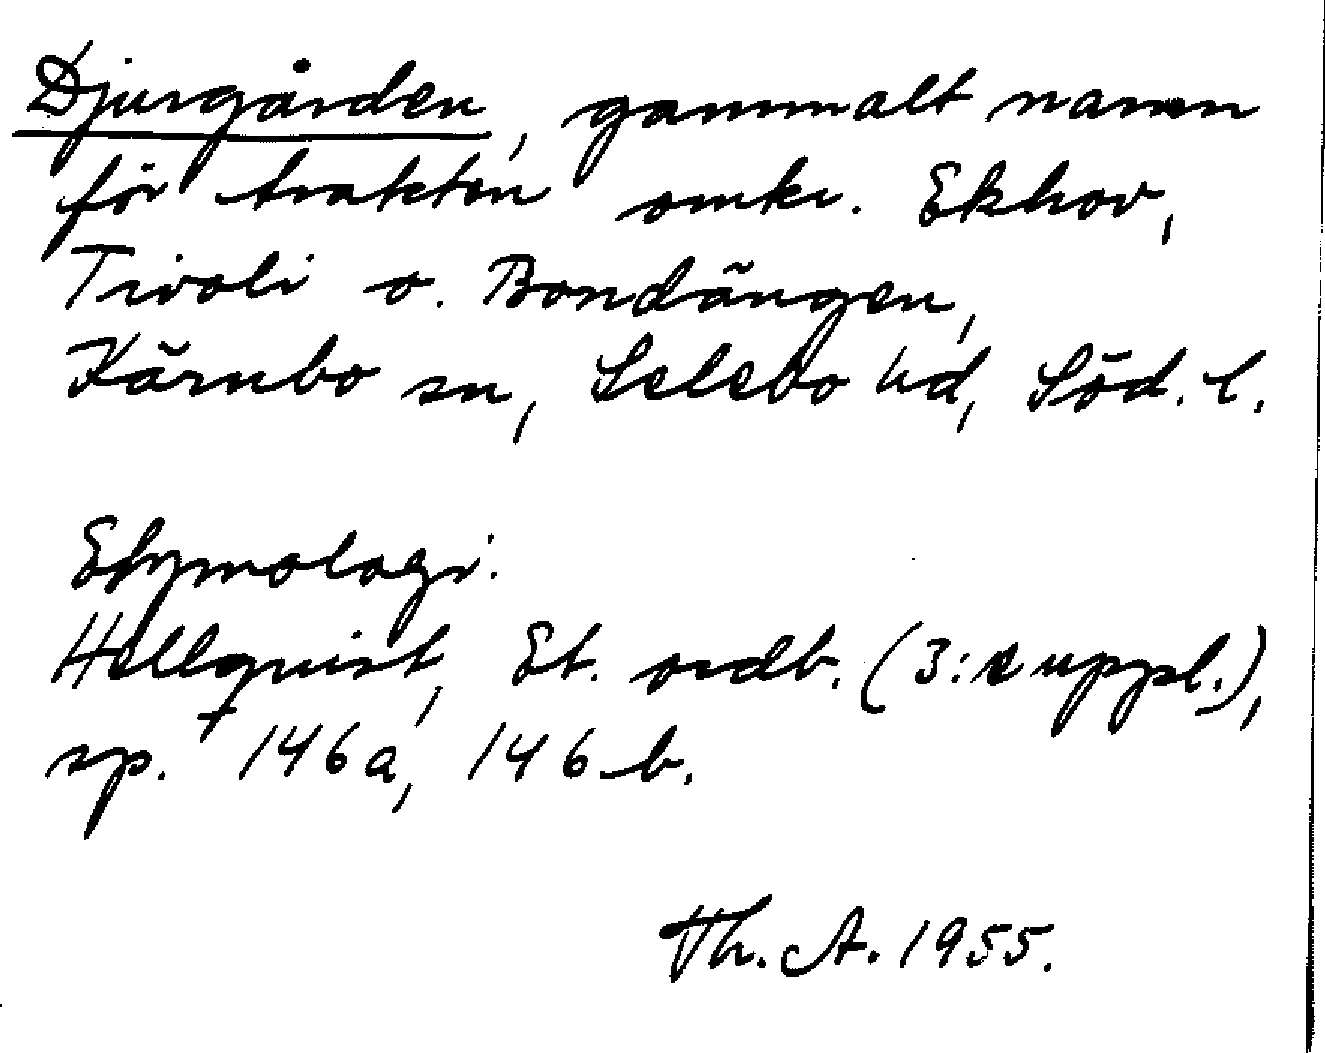 Djurgården, gammalt namn
för trakten omkr. Ekhov,
Tivoli o. Bondängen,
Kärnbo sn, Selebo hd, Söd. l.
Etymologi:
Hellquist, Et. ordb. (3:e uppl.),
sp. 146a, 146b.
Th. A. 1955.